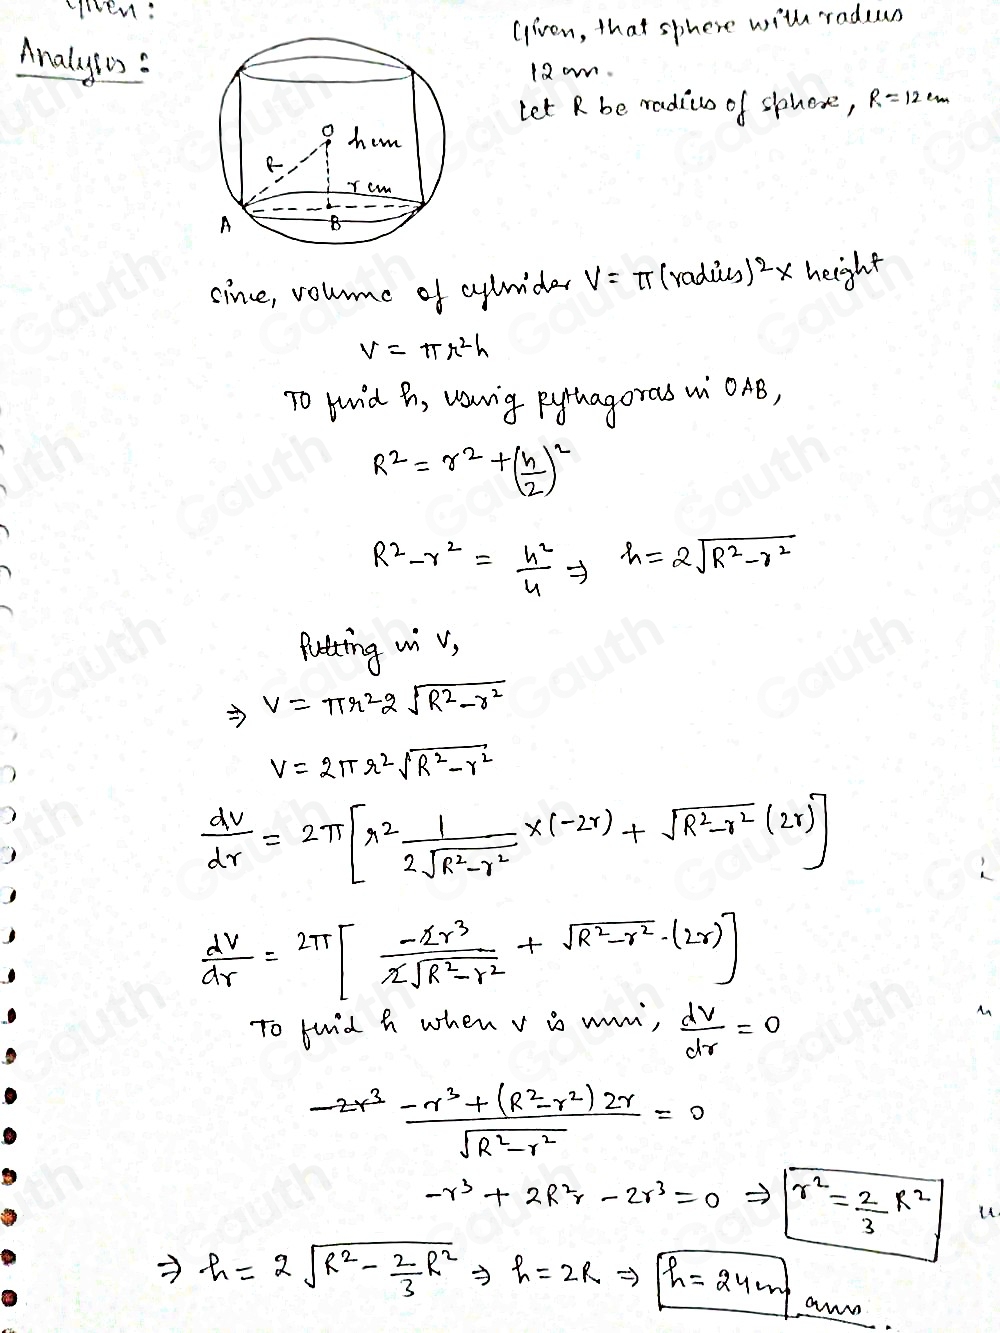 Given:
Analysis:
Given, that sphere with radius
12 cm.
Let R be radius of sphere, R = 12 cm
O
h cm
R
r cm
A
B
Since, volume of cylinder V = π(radius)² × height
V = πr²h
To find h, using pythagoras in OAB,
R² = r² + (h/2)²
R² - r² = h²/4 ⇒ h = 2√(R² - r²)
Putting in V,
⇒ V = πr²2√(R² - r²)
V = 2πr²√(R² - r²)
dV/dr = 2π[r² 1/(2√(R² - r²)) × (-2r) + √(R² - r²) (2r)]
dV/dr = 2π[-2r³/(2√(R² - r²)) + √(R² - r²) · (2r)]
To find h when v is mini, dV/dr = 0
-2r³ (-r³ + (R² - r²) 2r)/√(R² - r²) = 0
-r³ + 2R²r - 2r³ = 0 ⇒ r² = 2/3 R²
⇒ h = 2√(R² - 2/3 R²) ⇒ h = 2R ⇒ h = 24 cm ans